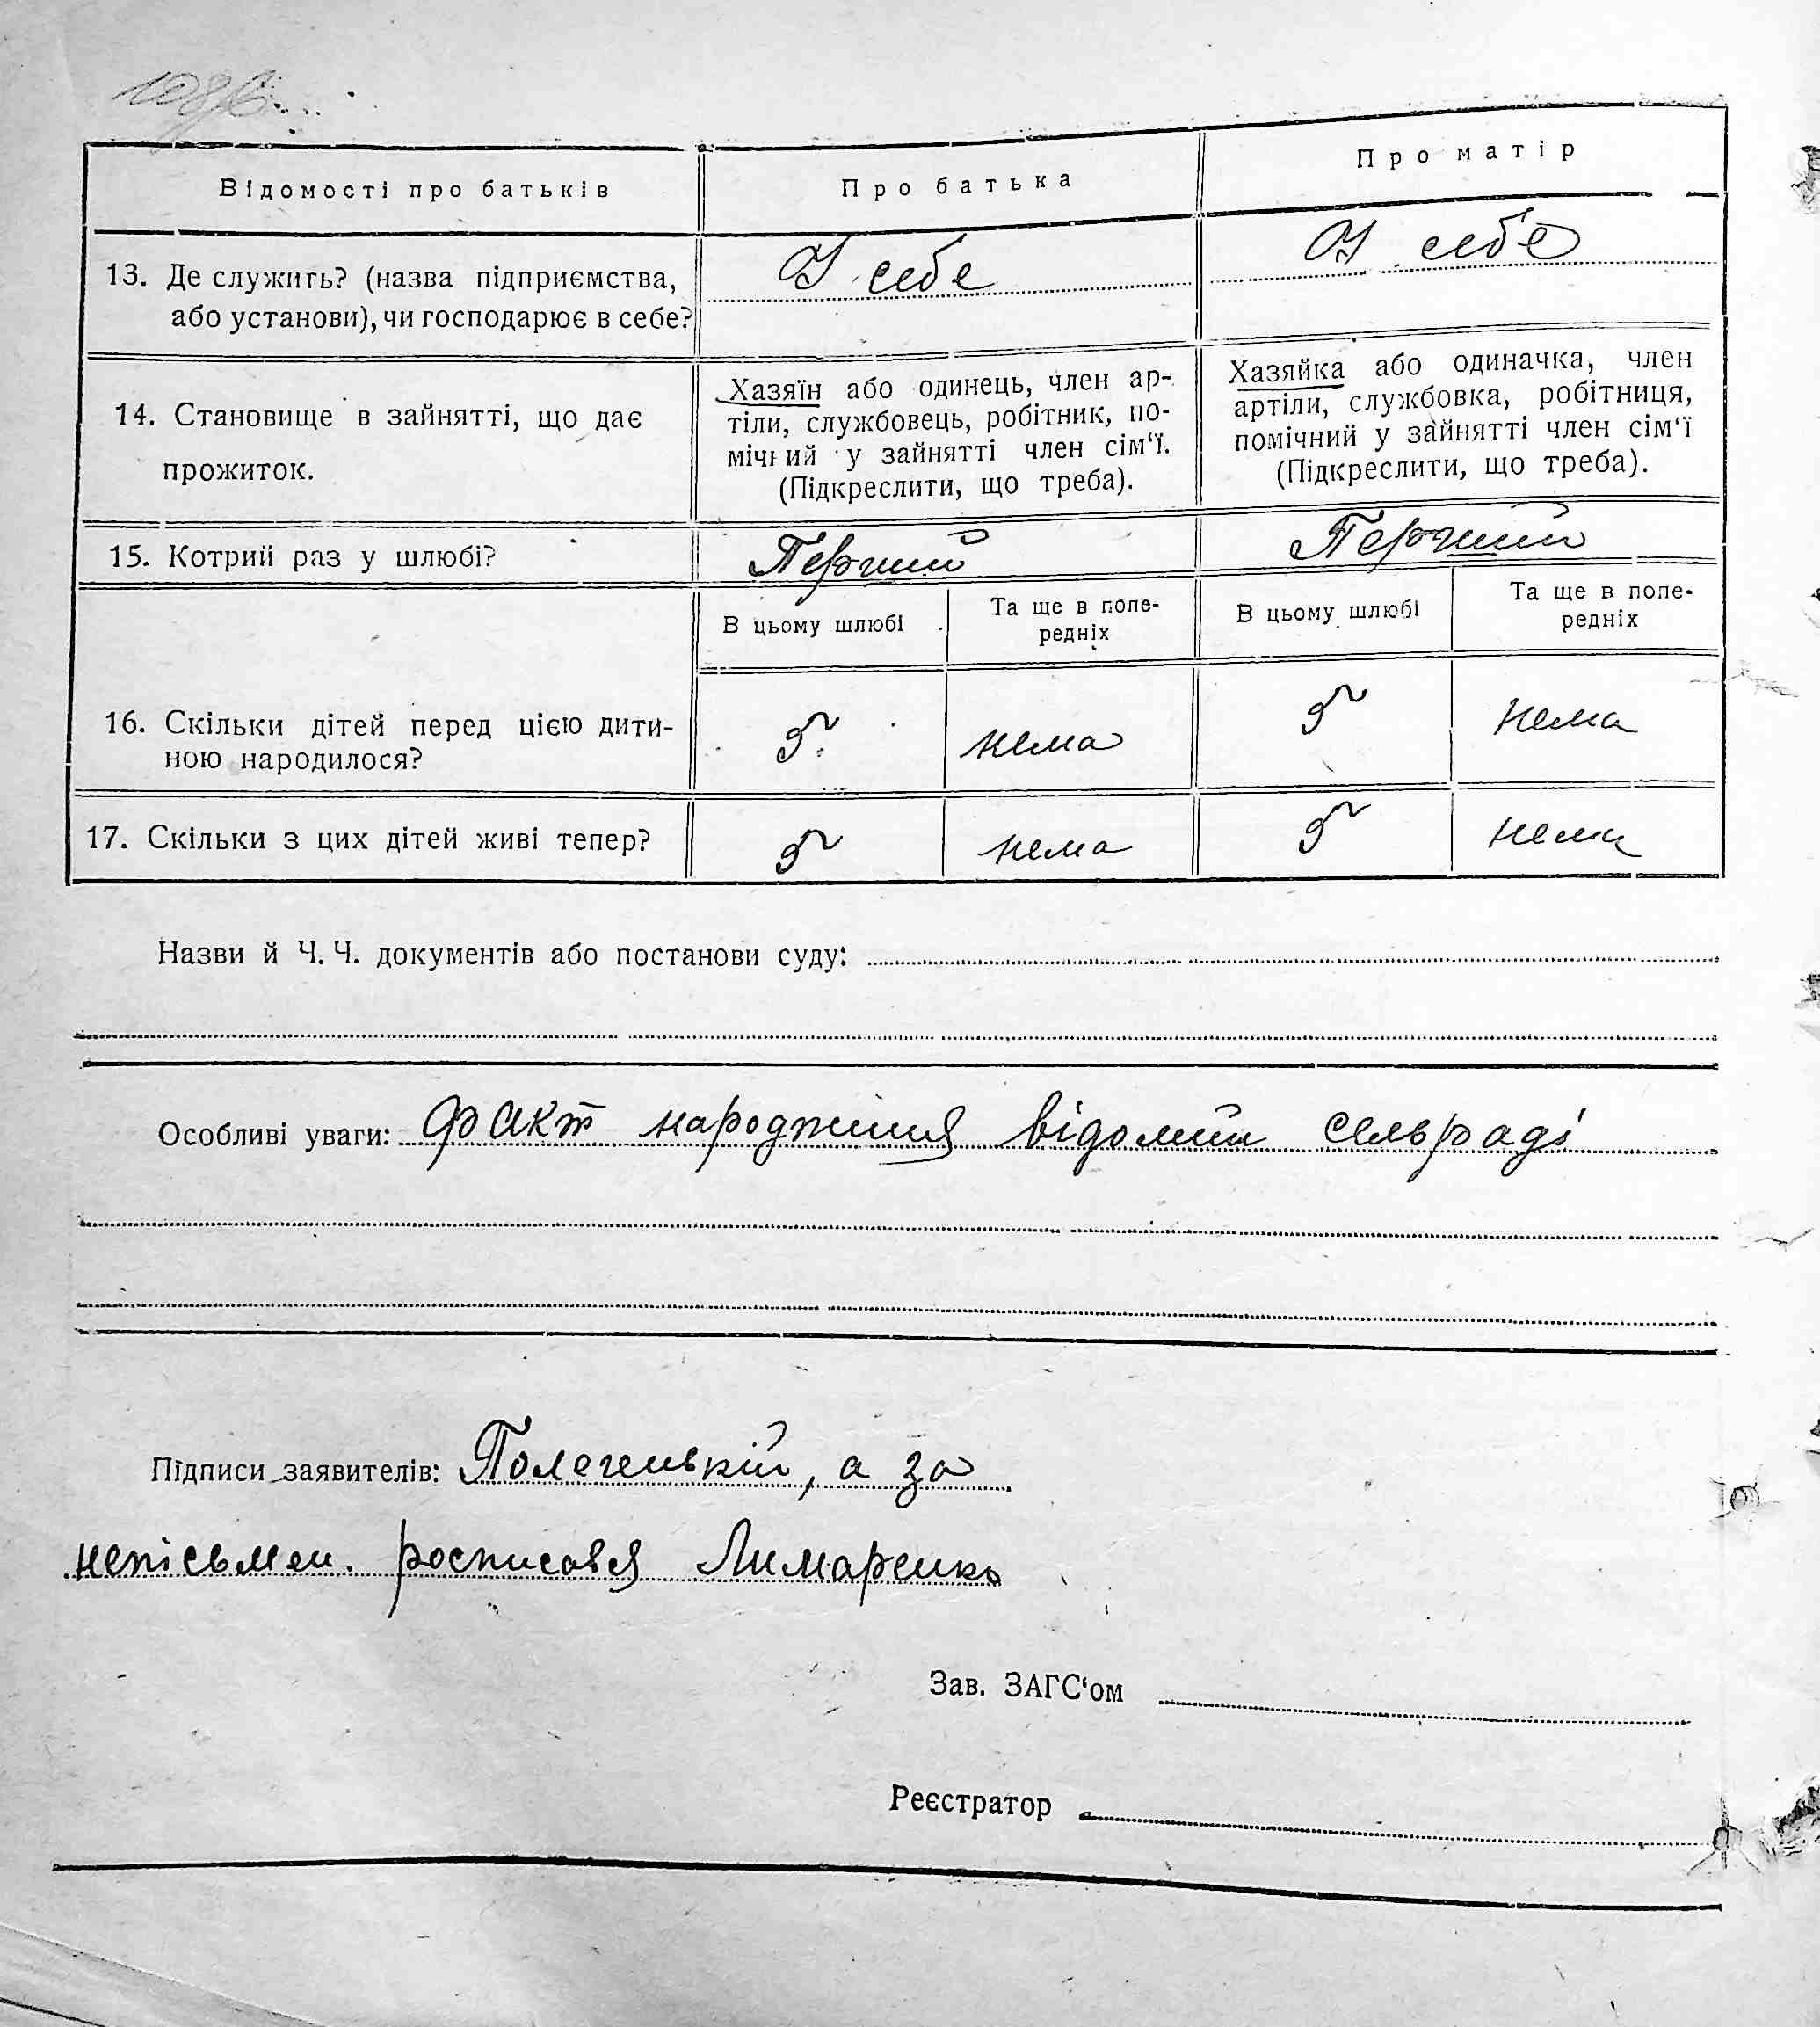 Відомості про батьків
Про батька
Про матір
13. Де служить? (назва підприємства,
або установи), чи господарює в себе?
У себе
У себе
14. Становище в зайнятті, що дає
прожиток.
Хазяїн або одинець, член ар-
тіли, службовець, робітник, по-
мічний у зайнятті член сім‘ї.
(Підкреслити, що треба).
Хазяйка або одиначка, член
артіли, службовка, робітниця,
помічний у зайнятті член сім‘ї
(Підкреслити, що треба).
15. Котрий раз у шлюбі?
Перший
Перший
В цьому шлюбі
Та ще в попе-
редніх
В цьому шлюбі
Та ще в попе-
редніх
16. Скільки дітей перед цією дити-
ною народилося?
5
нема
5
нема
17. Скільки з цих дітей живі тепер?
5
нема
5
нема
Назви й Ч. Ч. документів або постанови суду:
Особливі уваги: Факт народження відомий сельраді
Підписи заявителів: а за
непісьмен. росписався Лимаренко
Зав. ЗАГС‘ом
Реєстратор